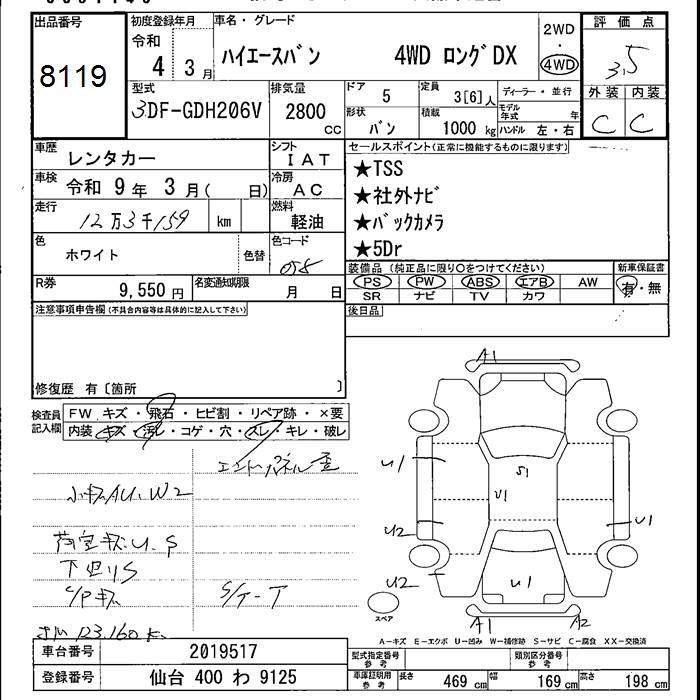 出品番号 8119
初度登録年月 令和 4 3 月
車名・グレード ハイエースバン 4WD ロングDX
2WD 4WD
評価点 3.5
外装 内装 C C
型式 3DF-GDH206V
排気量 2800 cc
ドア 5
定員 3[6]人
ディーラー・並行
形状 バン
積載 1000 kg
モデル年式 年
ハンドル 左・右
車歴 レンタカー
シフト IAT
セールスポイント(正常に機能するものに限ります)
車検 令和 9 年 3 月( 日)
冷房 AC
★TSS
★社外ナビ
★バックカメラ
★5Dr
走行 12万3千159 km
燃料 軽油
色 ホワイト 色替
色コード 058
装備品 (純正品に限り○をつけてください)
新車保証書 有・無
PS PW ABS エアB AW
SR ナビ TV カワ
R券 9,550 円
名変通知期限 月 日
後日品
注意事項申告欄(不具合内容等は具体的に記入して下さい)
修復歴 有〔箇所 〕
検査員記入欄
FW キズ・飛石・ヒビ割・リペア跡・×要
内装 キズ・汚レ・コゲ・穴・スレ・キレ・破レ
小キズAU.W2
荷室キズ.U.S
下廻りS
S/T-T
A1
U1
S1
U1
U2
U1
U2
U1
スペア
A1 A2
A-キズ E-エクボ U-凹み W-補修跡 S-サビ C-腐食 XX-交換済
車台番号 2019517
型式指定番号 参考
類別区分番号 参考
登録番号 仙台 400 わ 9125
車庫証明用 参考
長さ 469 cm 幅 169 cm 高さ 198 cm